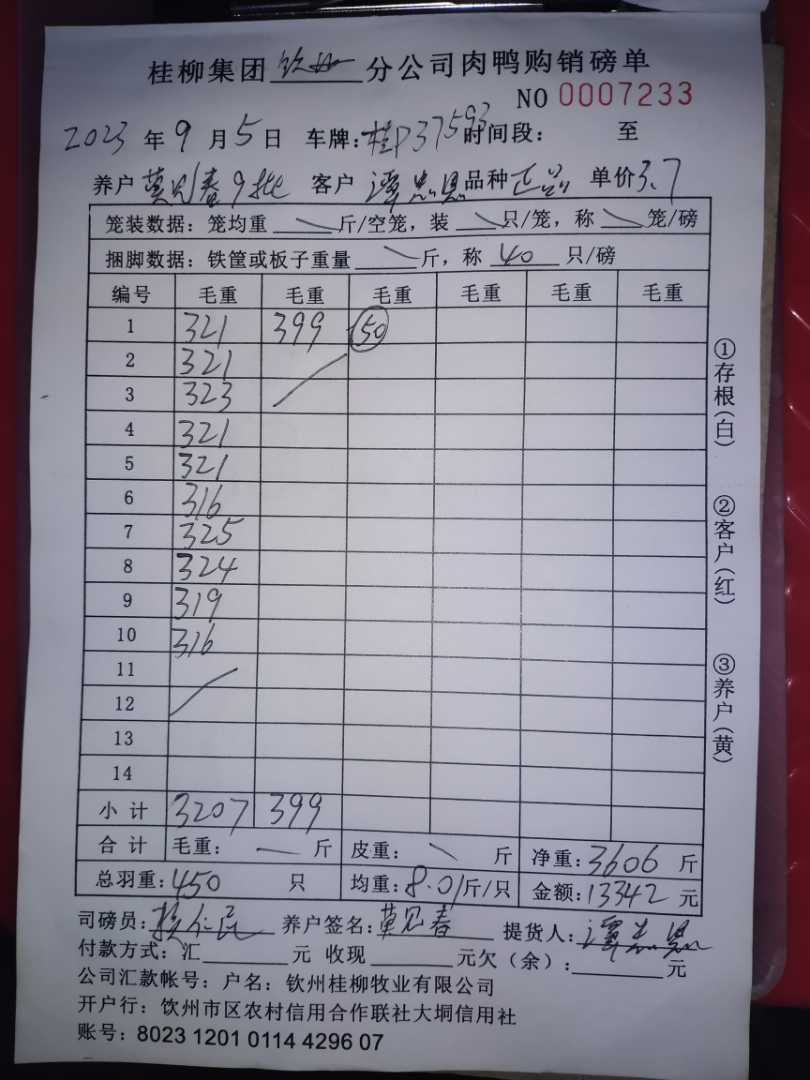 桂柳集团钦州分公司肉鸭购销磅单
NO 0007233
2023年9月5日 车牌:桂P37593 时间段: 至
养户 莫见春9批 客户 谭忠恩 品种 正品 单价3.7
笼装数据: 笼均重 斤/空笼, 装 只/笼, 称 笼/磅
捆脚数据: 铁筐或板子重量 斤, 称 40 只/磅
编号 毛重 毛重 毛重 毛重 毛重 毛重
1 321 399 50
2 321
3 323
4 321
5 321
6 316
7 325
8 324
9 319
10 316
11
12
13
14
小计 3207 399
合计 毛重: 斤 皮重: 斤 净重:3606斤
总羽重:450 只 均重:8.01斤/只 金额:13342元
司磅员: 仁民 养户签名:莫见春 提货人:谭忠恩
付款方式:汇 元 收现 元欠(余): 元
公司汇款帐号: 户名: 钦州桂柳牧业有限公司
开户行: 钦州市区农村信用合作联社大垌信用社
账号: 8023 1201 0114 4296 07
①存根(白)
②客户(红)
③养户(黄)